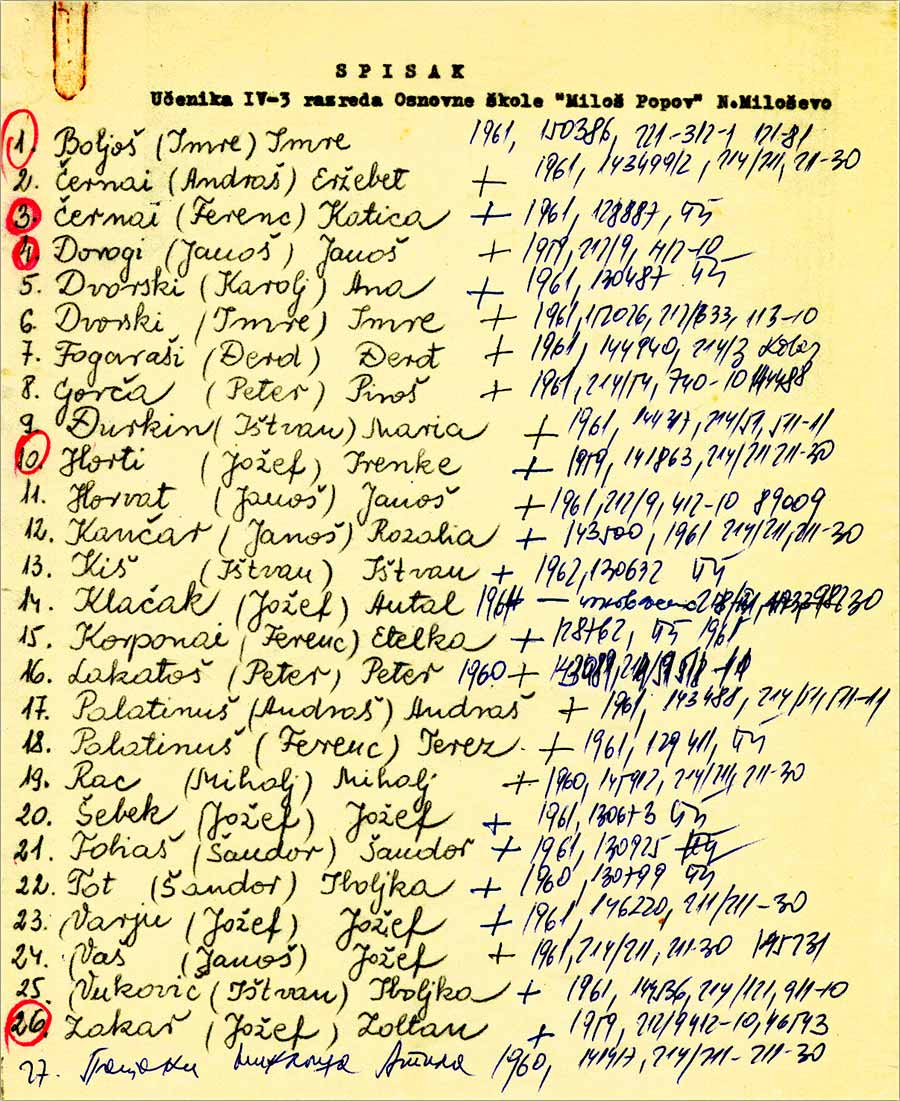 SPISAK
Učenika IV-3 razreda Osnovne škole "Miloš Popov" N.Miloševo
1. Boljoš (Imre) Imre 1961, 150386, 221-312-1 121-81
2. Černai (Andraš) Eržebet + 1961, 143499/2, 214/211, 211-30
3. Černai (Ferenc) Katica + 1961, 128887,
4. Dorogi (Janoš) Janoš + 1959, 212/9, 412-10
5. Dvorski (Karolj) Ana + 1961, 130487
6. Dvorski (Imre) Imre + 1961, 112026, 212/333, 113-10
7. Fogaraši (Đerđ) Đerđ + 1961, 144940, 214/3
8. Gorča (Peter) Piroš + 1961, 214/54, 740-10 144488
9. Đurkin (Ištvan) Maria + 1961, 214/51, 511-11
10. Horti (Jožef) Irenke + 1959, 141863, 214/211 211-30
11. Horvat (Janoš) Janoš + 1961, 212/9, 412-10 89009
12. Kančar (Janoš) Rozalia + 143500, 1961 214/211, 211-30
13. Kiš (Ištvan) Ištvan + 1962, 130632
14. Klačak (Jožef) Antal 1961 —
15. Korponai (Ferenc) Etelka + 128762, 1961
16. Lakatoš (Peter) Peter 1960 +
17. Palatinuš (Andraš) Andraš + 1961, 143488, 214/51, 511-11
18. Palatinuš (Ferenc) Terez + 1961, 129411,
19. Rac (Mihalj) Mihalj + 1960, 145912, 214/211, 211-30
20. Šebek (Jožef) Jožef + 1961, 130673
21. Tobiaš (Šandor) Šandor + 1961, 130925
22. Tot (Šandor) Iboljka + 1960, 130799
23. Varju (Jožef) Jožef + 1961, 146220, 211/211-30
24. Vaš (Janoš) Jožef + 1961, 214/211, 211-30 145231
25. Vuković (Ištvan) Iboljka + 1961, 144536, 214/121, 911-10
26. Zakar (Jožef) Zoltan + 1959, 212/9412-10, 46543
27. Атила 1960, 214/211-211-30